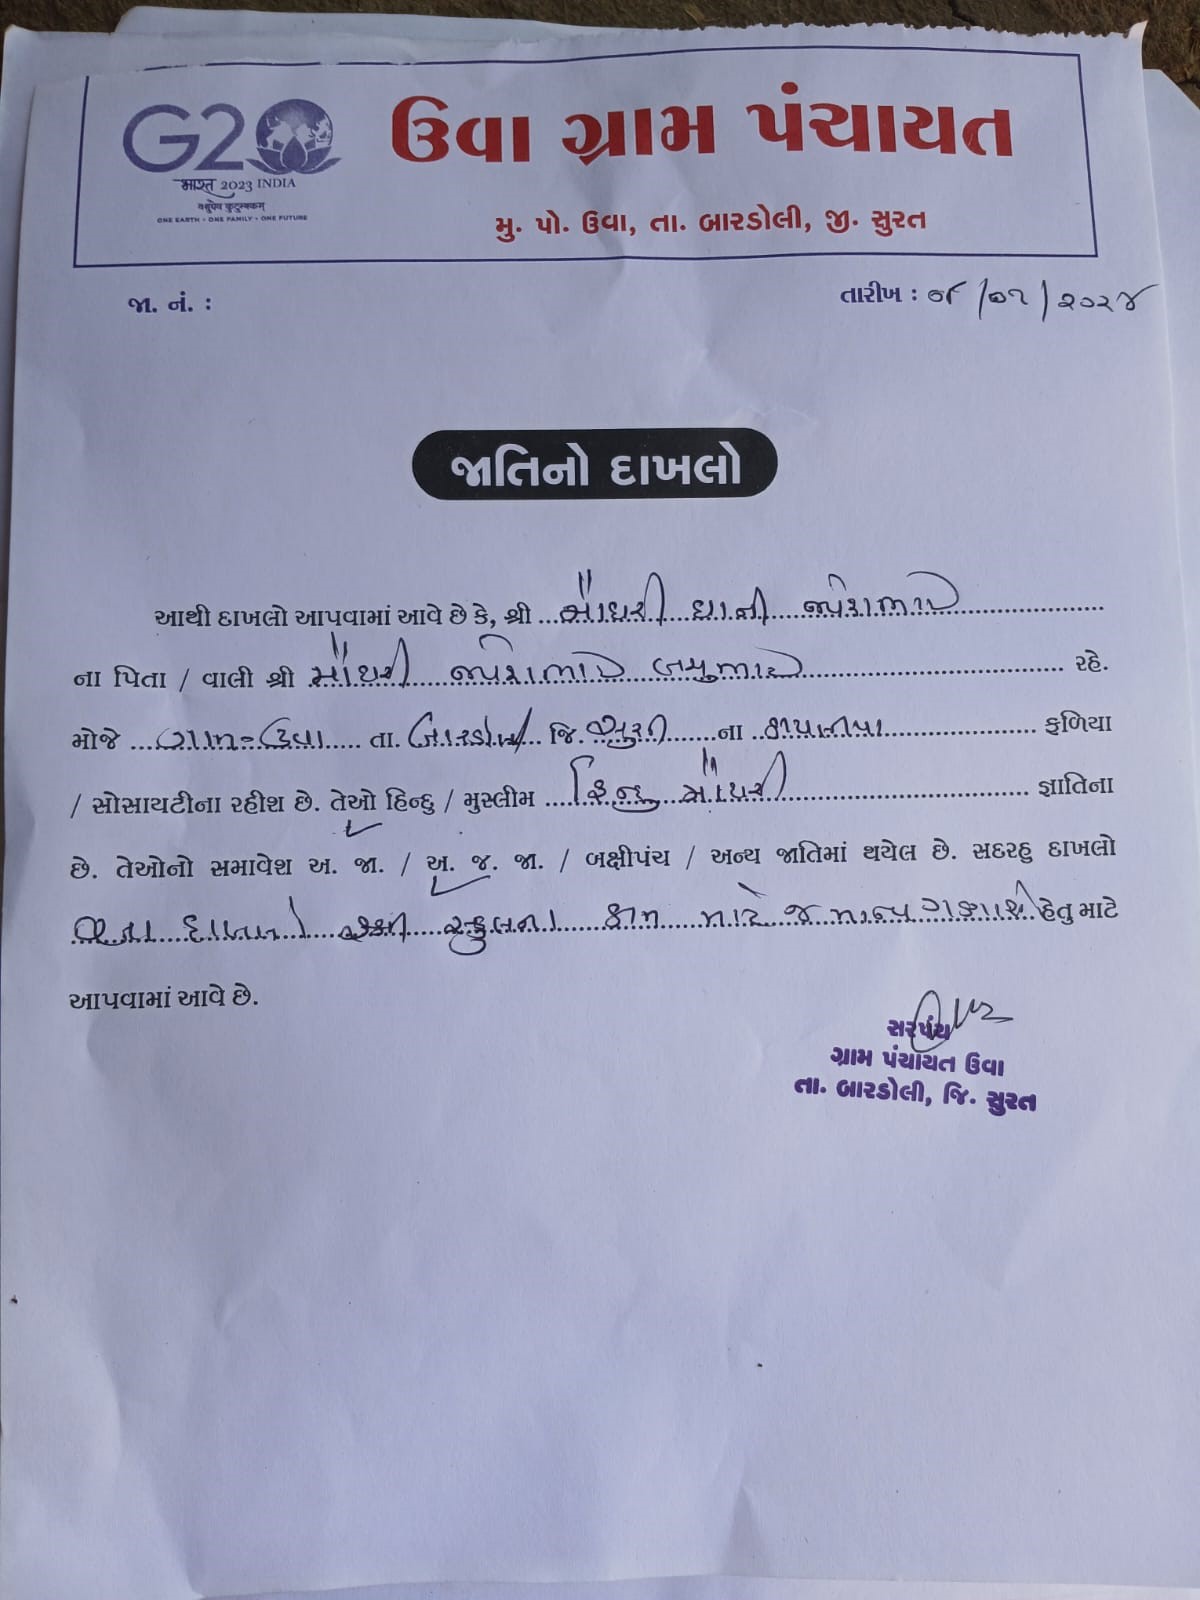 G20
भारत 2023 INDIA
वसुधैव कुटुम्बकम्
ONE EARTH • ONE FAMILY • ONE FUTURE
ઉવા ગ્રામ પંચાયત
મુ. પો. ઉવા, તા. બારડોલી, જી. સુરત
જા. નં. :
તારીખ : /૦૧/૨૦૨૪
જાતિનો દાખલો
આથી દાખલો આપવામાં આવે છે કે, શ્રી ચૌધરી
ના પિતા / વાલી શ્રી ચૌધરી રહે.
મોજે ગામ-ઉવા તા. બારડોલી જિ. સુરત ના ફળિયા
/ સોસાયટીના રહીશ છે. તેઓ હિન્દુ / મુસ્લીમ હિન્દુ ચૌધરી જ્ઞાતિના
છે. તેઓનો સમાવેશ અ. જા. / અ. જ. જા. / બક્ષીપંચ / અન્ય જાતિમાં થયેલ છે. સદરહુ દાખલો
દાખલો સ્કુલના કામ માટે જ માન્ય ગણાશે હેતુ માટે
આપવામાં આવે છે.
સરપંચ
ગ્રામ પંચાયત ઉવા
તા. બારડોલી, જિ. સુરત